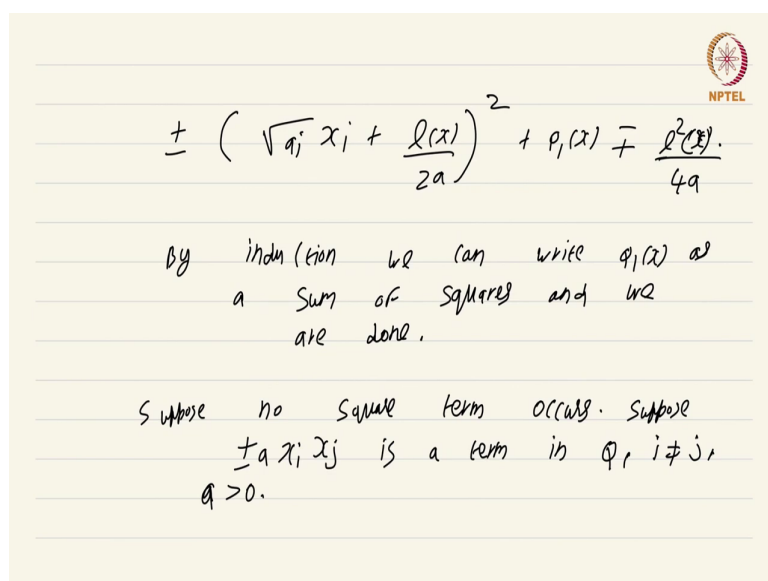 NPTEL
± ( √a_i x_i + l(x)/2a )^2 + φ_1(x) ∓ l^2(x)/4a .
By induction we can write φ_1(x) as
a sum of squares and we
are done.
Suppose no square term occurs. Suppose
±a x_i x_j is a term in φ, i≠j,
a >0.